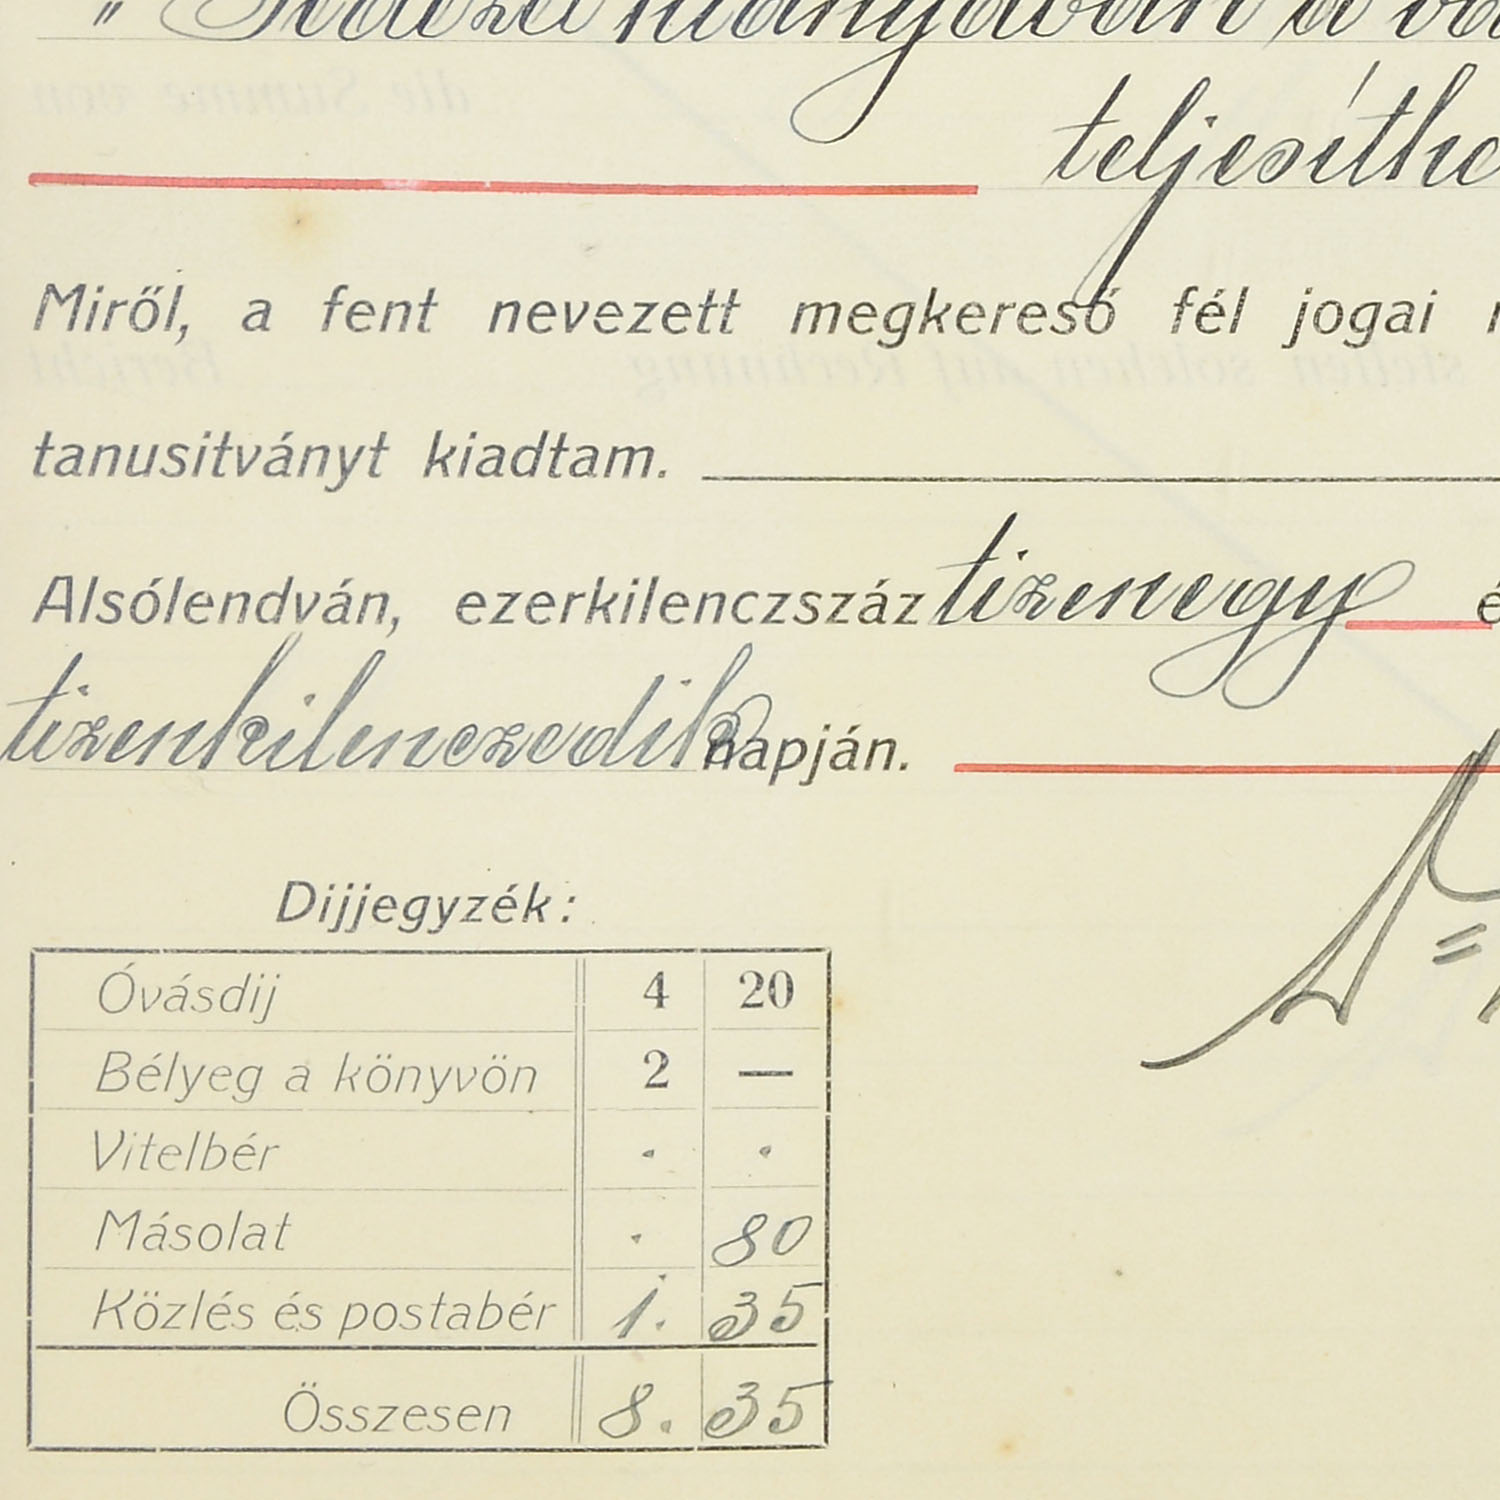 " Fedezet hiányában a
teljesíthe
Miről, a fent nevezett megkereső fél jogai
tanusitványt kiadtam.
Alsólendván, ezerkilenczszáz tizenegy é
tizenkilenczedik napján.
Dijjegyzék:
Óvásdij 4 20
Bélyeg a könyvön 2 —
Vitelbér . .
Másolat . 80
Közlés és postabér 1. 35
Összesen 8. 35